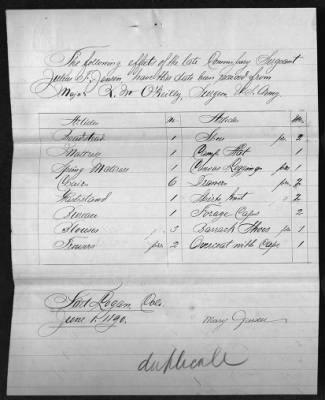 The following effects of the late Commissary Sergeant
Julius F. Jensen have this date been received from
Major R. M. O'Reilly, Surgeon U.S. Army.
Articles No Articles No
Bedstead 1 Shoes prs. 2
Mattress 1 Camp Hat 1
Spring Mattress 1 Canvas Leggings pr. 1
Chairs 6 Drawers prs. 2
Washstand 1 Shirts knit 2
Bureau 1 Forage Caps 2
Blouses 3 Barrack Shoes pr. 1
Trowsers prs 2 Overcoat with Cape 1
Fort Logan Colo.
June 1, 1890.
Mary Jensen
duplicate